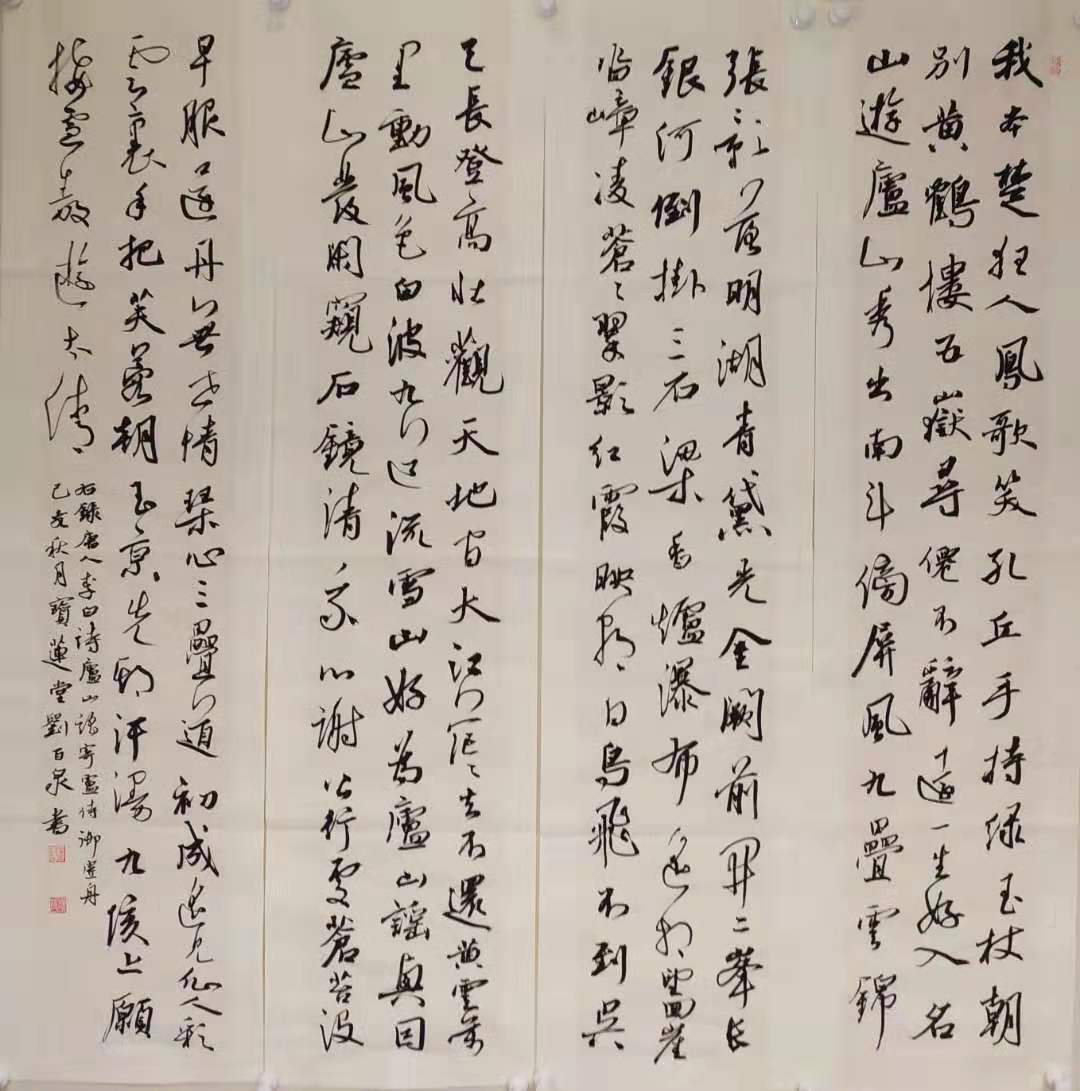 我本楚狂人鳳歌笑孔丘手持绿玉杖朝
別黄鶴樓五嶽尋僊不辭遠一生好入名
山遊廬山秀出南斗傍屏風九疊雲錦
張影落明湖青黛光金闕前開二峯長
銀河倒掛三石梁香爐瀑布遙相望回崖
沓嶂凌蒼〻翠影红霞映朝日鳥飛不到吳
天長登高壯觀天地间大江茫〻去不還黄雲萬
里動風色白波九道流雪山好為廬山謠興因
廬山發閑窺石鏡清我心謝公行處蒼苔没
早服還丹無世情琴心三疊道初成遙見仙人彩
雲裏手把芙蓉朝玉京先期汗漫九垓上願
接盧敖遊太清
右錄唐人李白詩廬山謠寄盧侍御虛舟
己亥秋月寶蓮堂劉百泉書